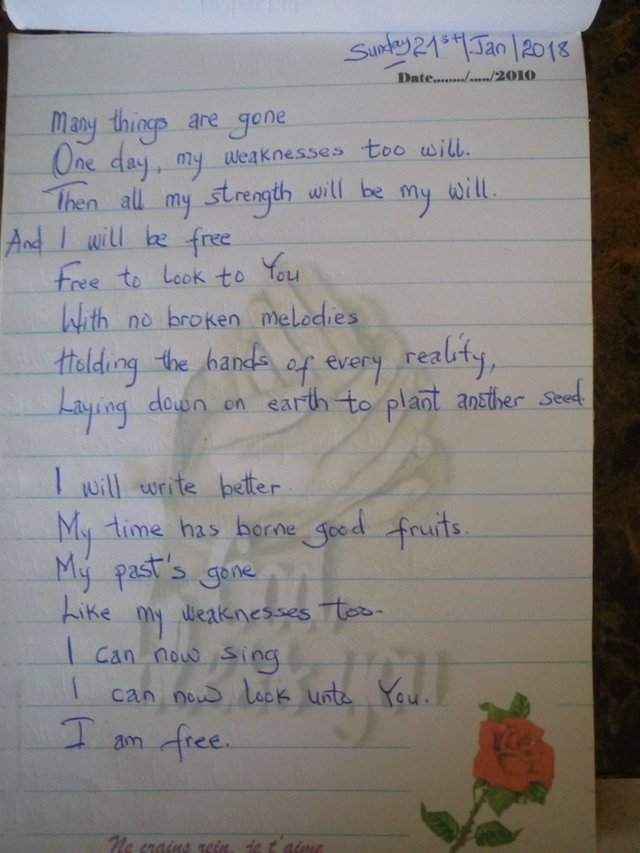 Sunday 21st/Jan/2018
Date......../...../2010
Many things are gone
One day, my weaknesses too will.
Then all my strength will be my will.
And I will be free
Free to look to You
With no broken melodies
Holding the hands of every reality,
Laying down on earth to plant another seed
I will write better.
My time has borne good fruits.
My past's gone
Like my weaknesses too.
I can now sing
I can now look unto You.
I am free.
Ne crains rein, je t'aime